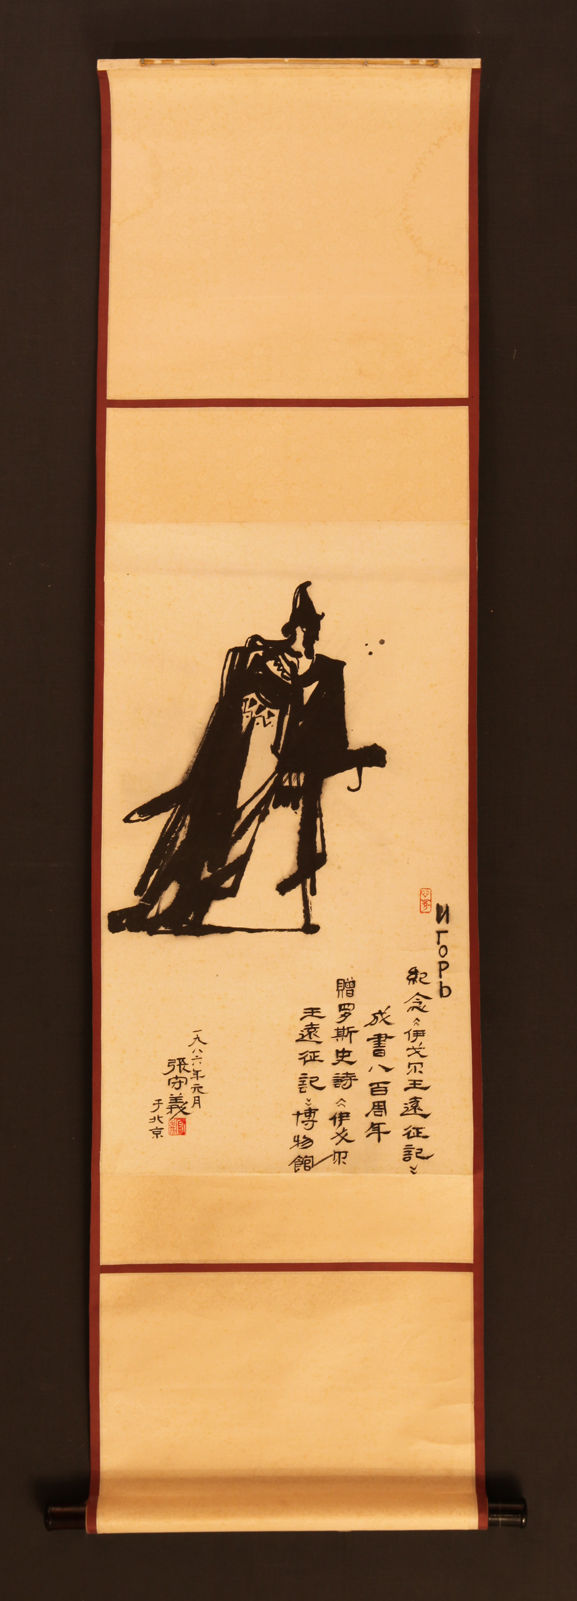 ИГОРЬ
紀念《伊戈尔王遠征記》
成書八百周年
贈罗斯史詩《伊戈尔
王遠征記》博物館
一九八六年元月
張守義
于北京